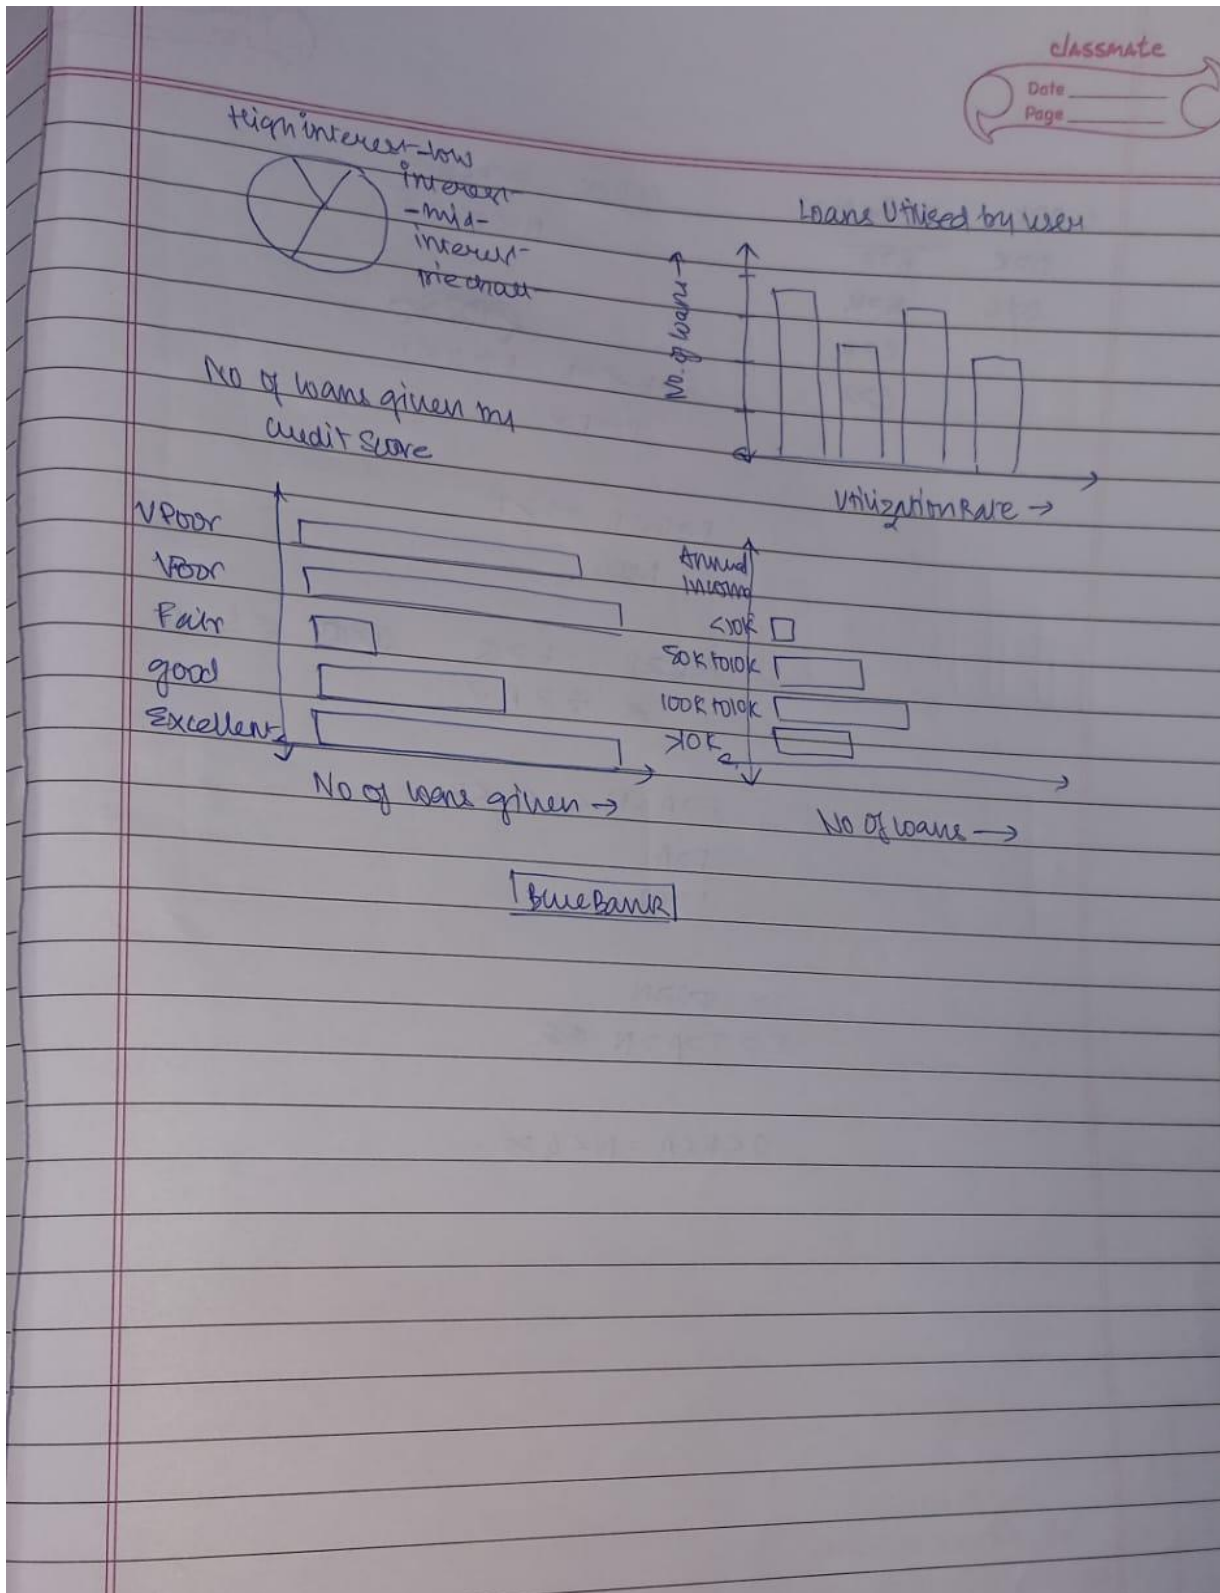 classmate
Date
Page
High interest-low
interest-
-mid-
interest-
piechart
Loans Utilised by user
No. of loans →
Utilization Rate →
No of loans given by
credit Score
VPoor
Poor
Fair
good
Excellent
No of loans given →
Annual
Income
<10K
50K to10K
100K to10K
>10K
No Of loans →
BlueBank